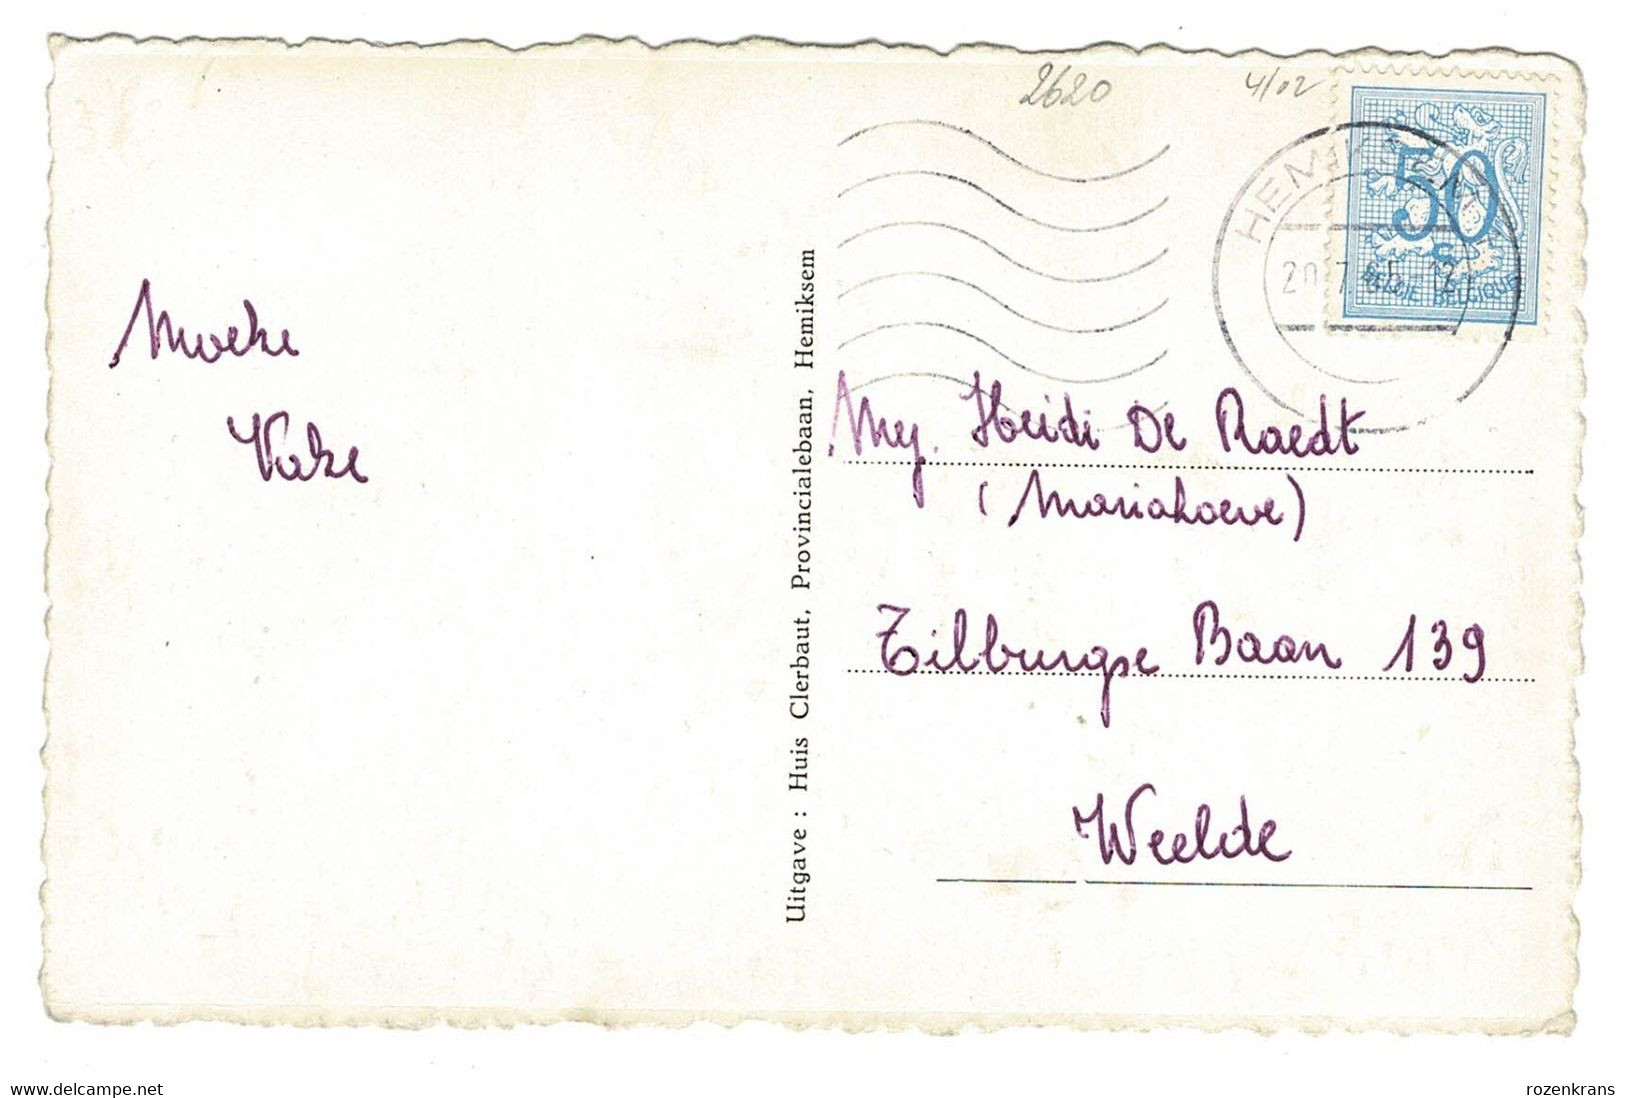 2620
4/02
50
BELGIE BELGIQUE
Moeke
Vake
Uitgave : Huis Clerbaut, Provincialebaan, Hemiksem
Mej. Heidi De Raedt
(Mariahoeve)
Tilburgse Baan 139
Weelde
www.delcampe.net
rozenkrans